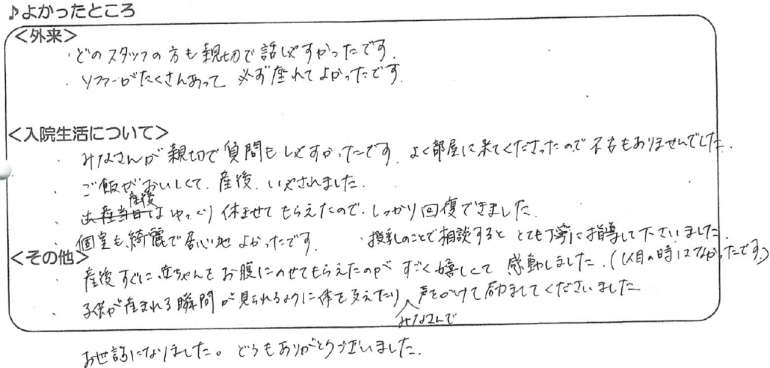 ♪よかったところ
＜外来＞
・どのスタッフの方も親切で話しやすかったです.
・ソファーがたくさんあって 必ず座れてよかったです.
＜入院生活について＞
・みなさんが親切で質問もしやすかったです. よく部屋に来てくださったので不安もありませんでした.
・ご飯がおいしくて、産後、いやされました.
・産後はゆっくり休ませてもらえたので、しっかり回復できました.
・個室も綺麗で居心地よかったです. ・授乳のことで相談するととても丁寧に指導して下さいました.
＜その他＞
・産後すぐに赤ちゃんをお腹にのせてもらえたのがすごく嬉しくて感動しました.(1人目の時はなかったです.)
・子供が産まれる瞬間が見られるように体を支えたり、みなさんで声をかけて励ましてくださいました
お世話になりました。どうもありがとうございました.